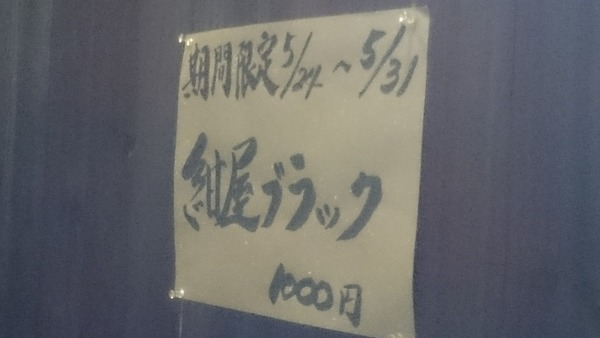 期間限定5/27~5/31
紺屋ブラック
1000円